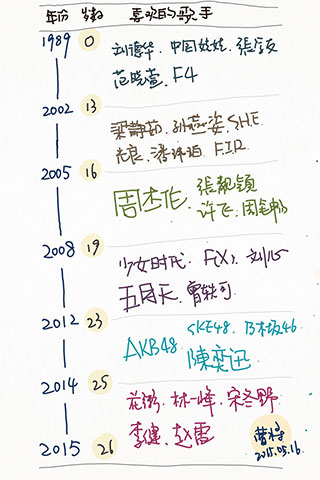 年份 岁数 喜欢的歌手
1989 0
刘德华、中国娃娃、張信哲
范晓萱、F4
2002 13
梁静茹、孙燕姿、S.H.E
光良、潘玮柏、F.I.R
2005 16
周杰伦 張靓颖
许飞、周笔畅
2008 19
少女时代、F(X)、刘
五月天、曾轶可
2012 23
SKE48、乃木坂46
AKB48 陳奕迅
2014 25
花粥、林一峰、宋冬野
李健、赵雷
2015 26
2015.05.16